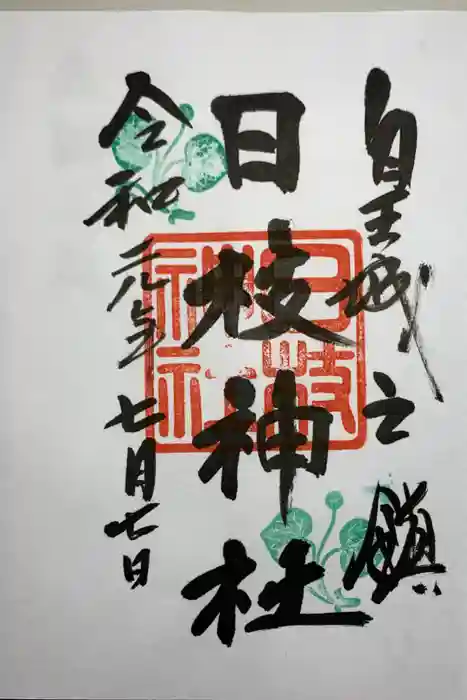 皇城之鎮
日枝神社
令和元年七月七日